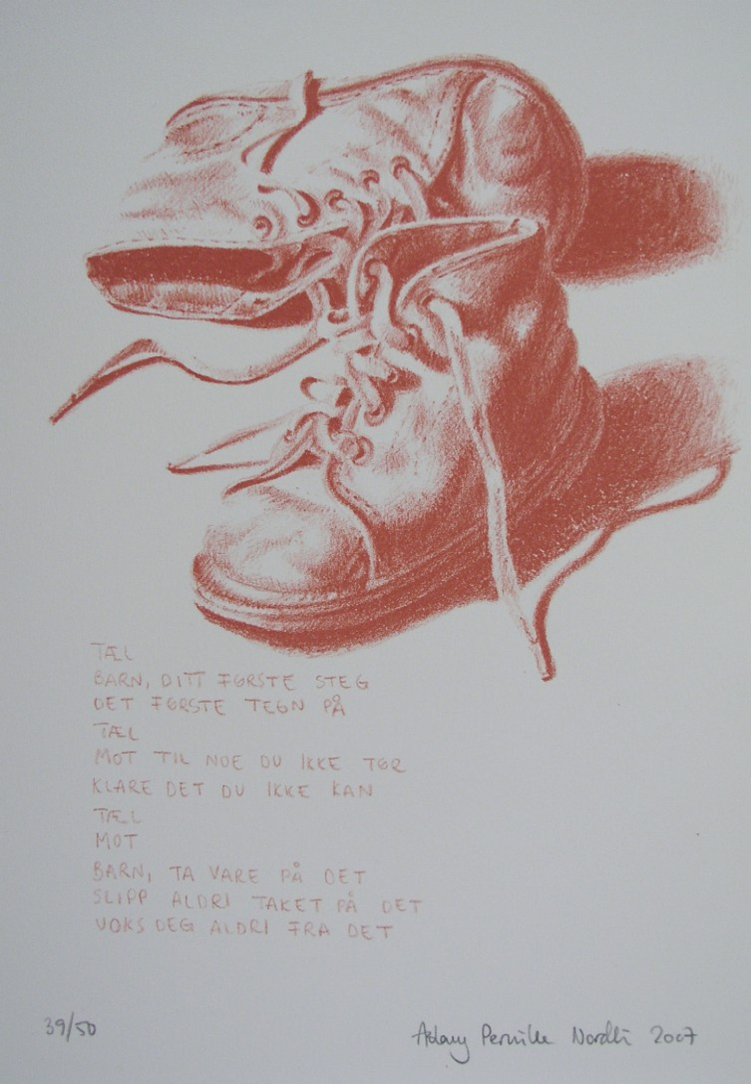 TÆL
BARN, DITT FØRSTE STEG
DET FØRSTE TEGN PÅ
TÆL
MOT TIL NOE DU IKKE TØR
KLARE DET DU IKKE KAN
TÆL
MOT
BARN, TA VARE PÅ DET
SLIPP ALDRI TAKET PÅ DET
VOKS DEG ALDRI FRA DET
39/50
Pernille Nordli 2007